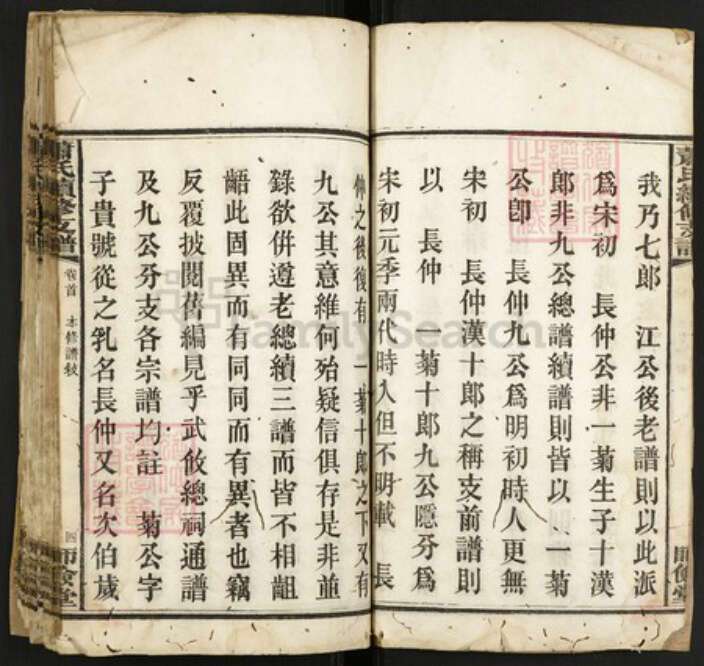 我乃七郎　江公後老譜則以此派
爲宋初　長仲公非一菊生子十漢
郎非九公總譜續譜則皆以　一菊
公卽　長仲九公爲明初時人更無
宋初　長仲漢十郎之稱支前譜則
以　長仲　一菊十郎九公隱分爲
宋初元季兩代時人但不明載　長
仲之後復有　一菊十郎之下又有
九公其意維何殆疑信俱存是非並
錄欲倂遵老總續三譜而皆不相齟
齬此固異而有同同而有異者也竊
反覆披閱舊編見乎武攸總祠通譜
及九公分支各宗譜均註　菊公字
子貴號從之乳名長仲又名次伯歲
蕭氏續修支譜
卷首
本修譜敘
四
師儉堂
蕭氏續修支譜
師儉堂
FamilySearch